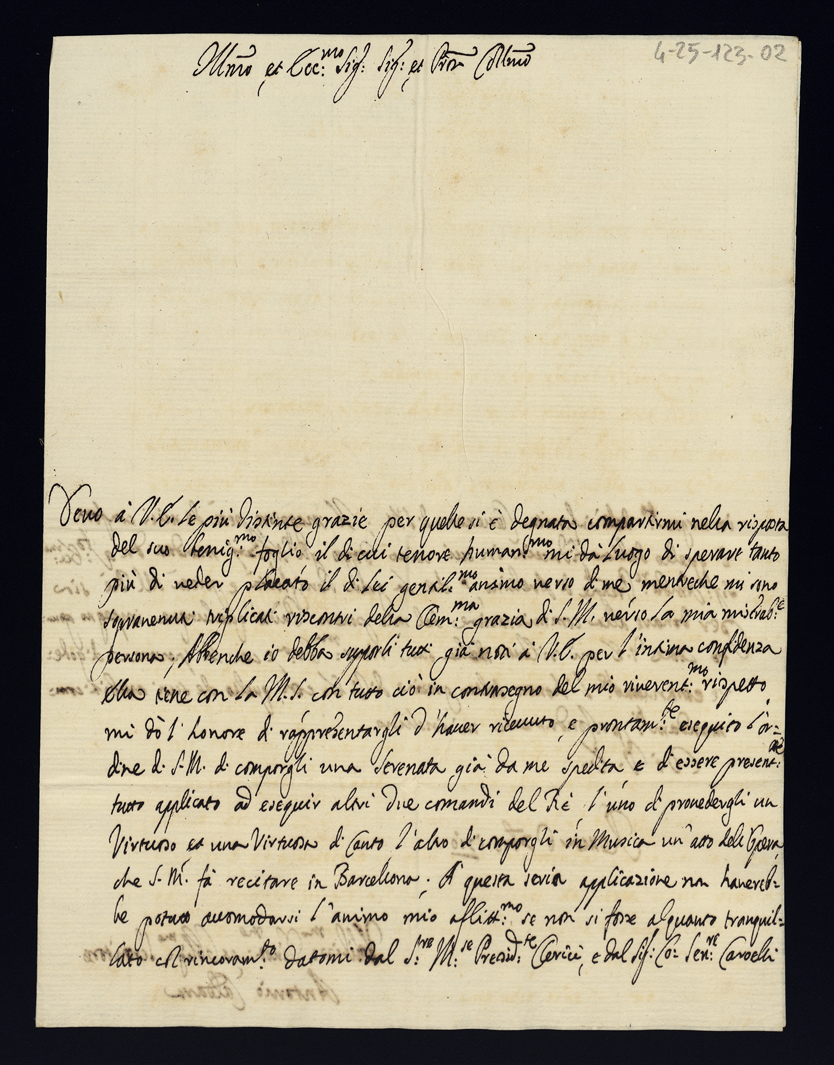 4-25-123-02
Illmo et Ecc:mo Sig: Sig: et Pron Collmo
Devo à V.E. le più distinte grazie per quelle si è degnata compartirmi nella risposta
del suo benig:mo foglio il di cui tenore humaniss:mo mi dà luogo di sperare tanto
più di veder placato il di lei genial:mo animo verso di me mentreche mi sono
sopravenuti triplicati riscontri della Clem:ma grazia di S.M. verso la mia miserab:le
persona; Abbenche io debba supporli tutti già noti à V.E. per l'intima confidenza
ella tiene con la M.S. con tutto ciò in contrasegno del mio riverent:mo rispetto
mi dò l'honore di rappresentargli d'haver ricevuto, e prontam:te eseguito l'or-
dine di S.M. di comporgli una serenata già da me spedita e di essere present:me
tutto applicato ad eseguir altri due comandi del Rè l'uno di provedergli un
Virtuoso et una Virtuosa di Canto l'altro di comporgli in Musica un'atto dell'Opera,
che S.M. fà recitare in Barcellona; A questa seria applicazione non haverei-
be potuto accomodarsi l'animo mio afflitt:mo se non si fosse alquanto tranquil-
lato col rincoram:to datomi dal S:re M:se Presid:te Clerici, e dal Sig: Co: Sen:re Caroelli
Antonio Caldara